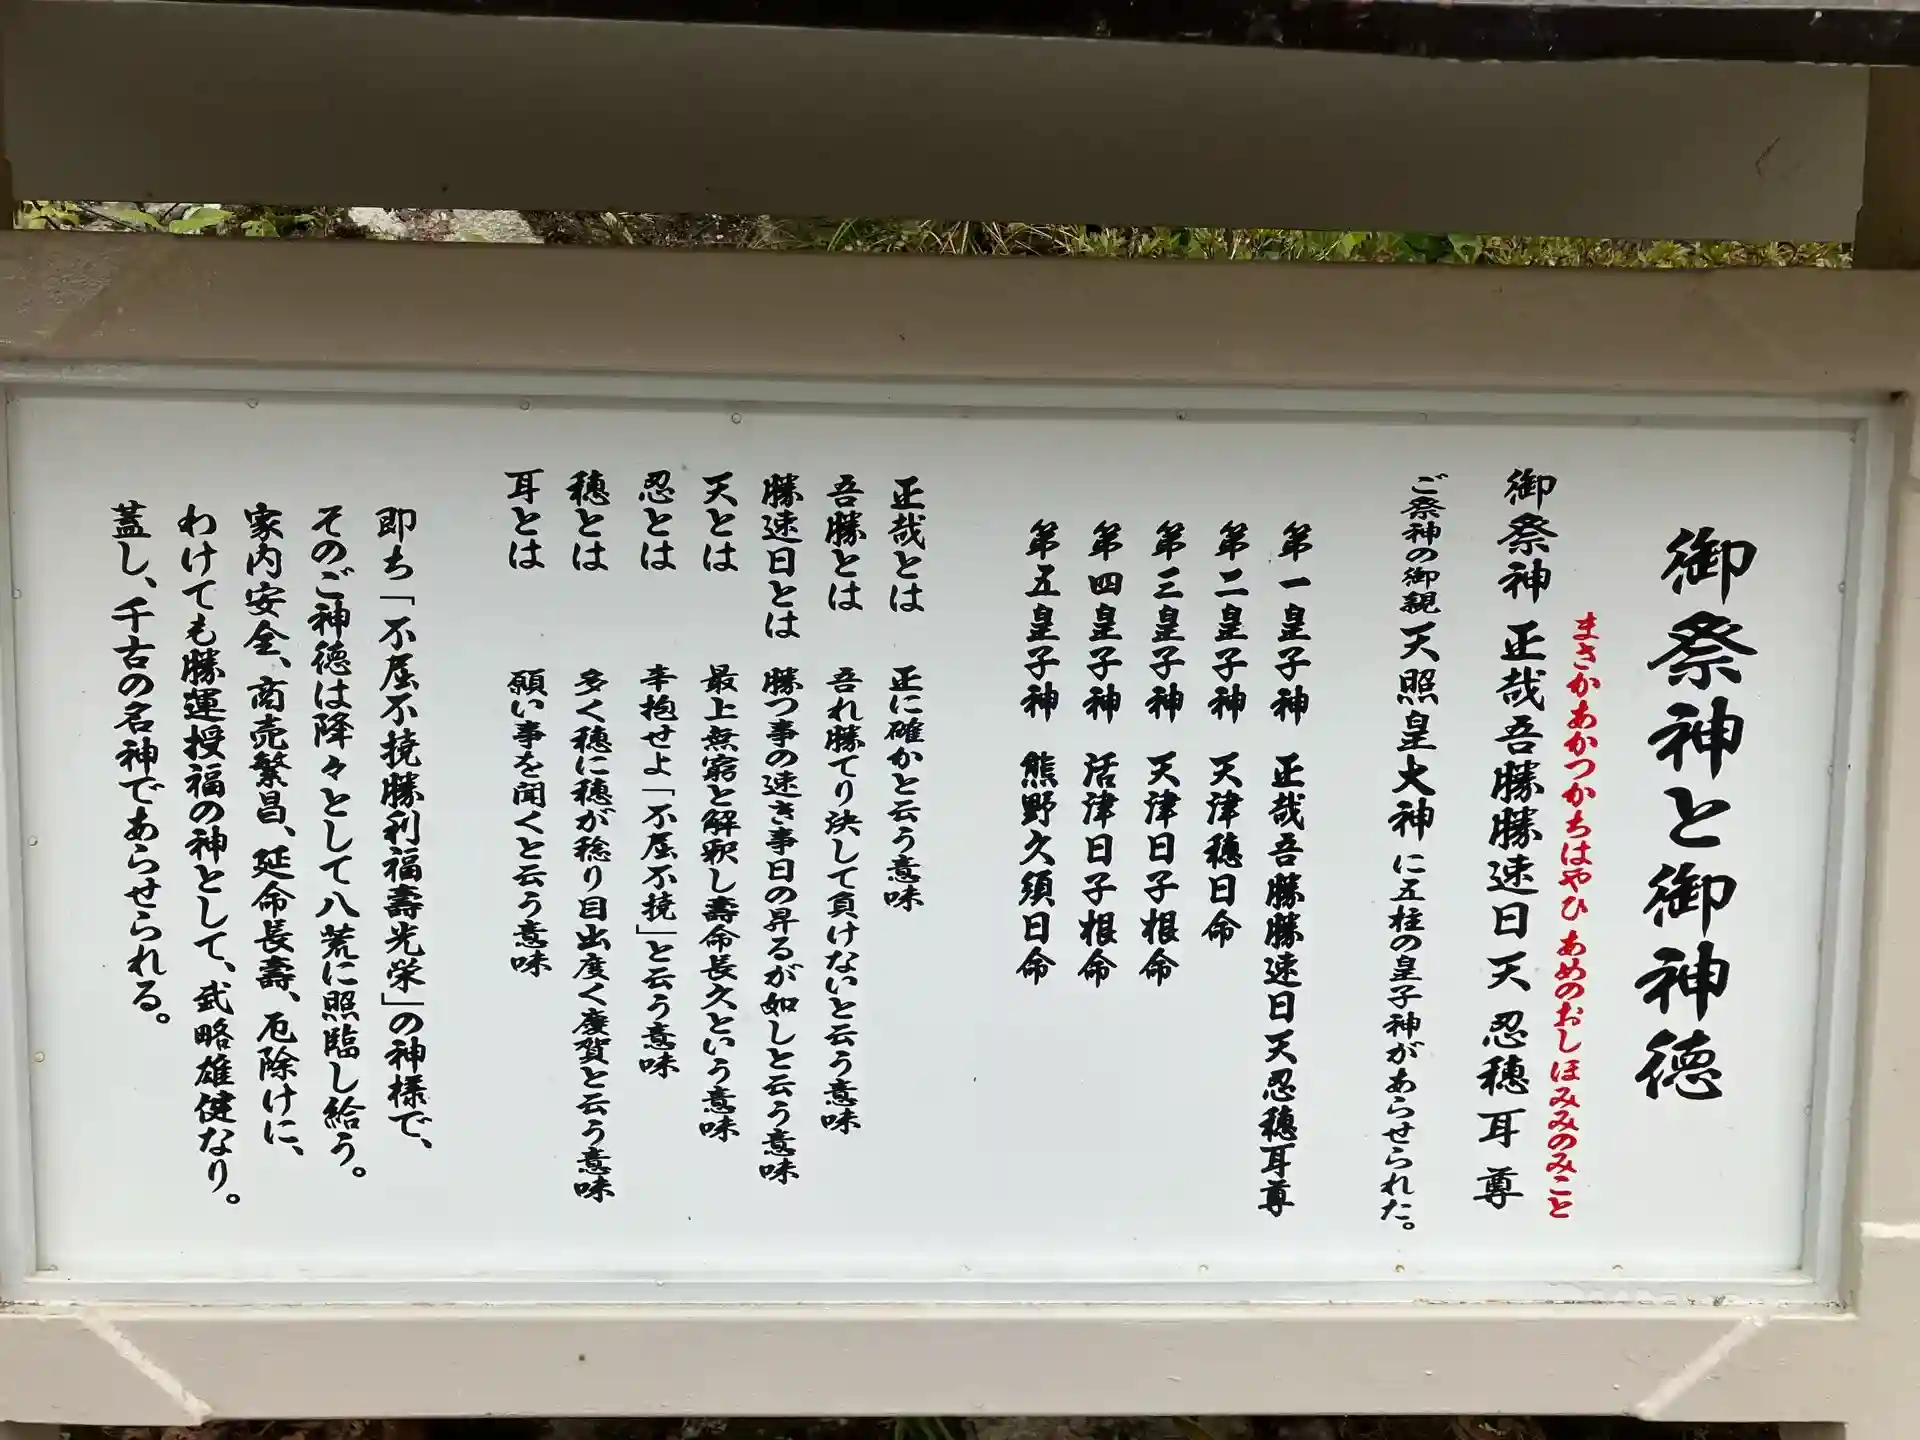 御祭神と御神徳
まさかあかつかちはやひ あめのおしほみみのみこと
御祭神 正哉吾勝勝速日天 忍穂耳 尊
ご祭神の御親 天照皇大神 に五柱の皇子神があらせられた。
第一皇子神 正哉吾勝勝速日天忍穂耳尊
第二皇子神 天津穂日命
第三皇子神 天津日子根命
第四皇子神 活津日子根命
第五皇子神 熊野久須日命
正哉とは 正に確かと云う意味
吾勝とは 吾れ勝てり決して負けないと云う意味
勝速日とは 勝つ事の速き事日の昇るが如しと云う意味
天とは 最上無窮と解釈し壽命長久という意味
忍とは 辛抱せよ「不屈不撓」と云う意味
穂とは 多く穂に穂が稔り目出度く慶賀と云う意味
耳とは 願い事を聞くと云う意味
即ち「不屈不撓勝利福壽光栄」の神様で、
そのご神徳は降々として八荒に照臨し給う。
家内安全、商売繁昌、延命長壽、厄除けに、
わけても勝運授福の神として、武略雄健なり。
蓋し、千古の名神であらせられる。